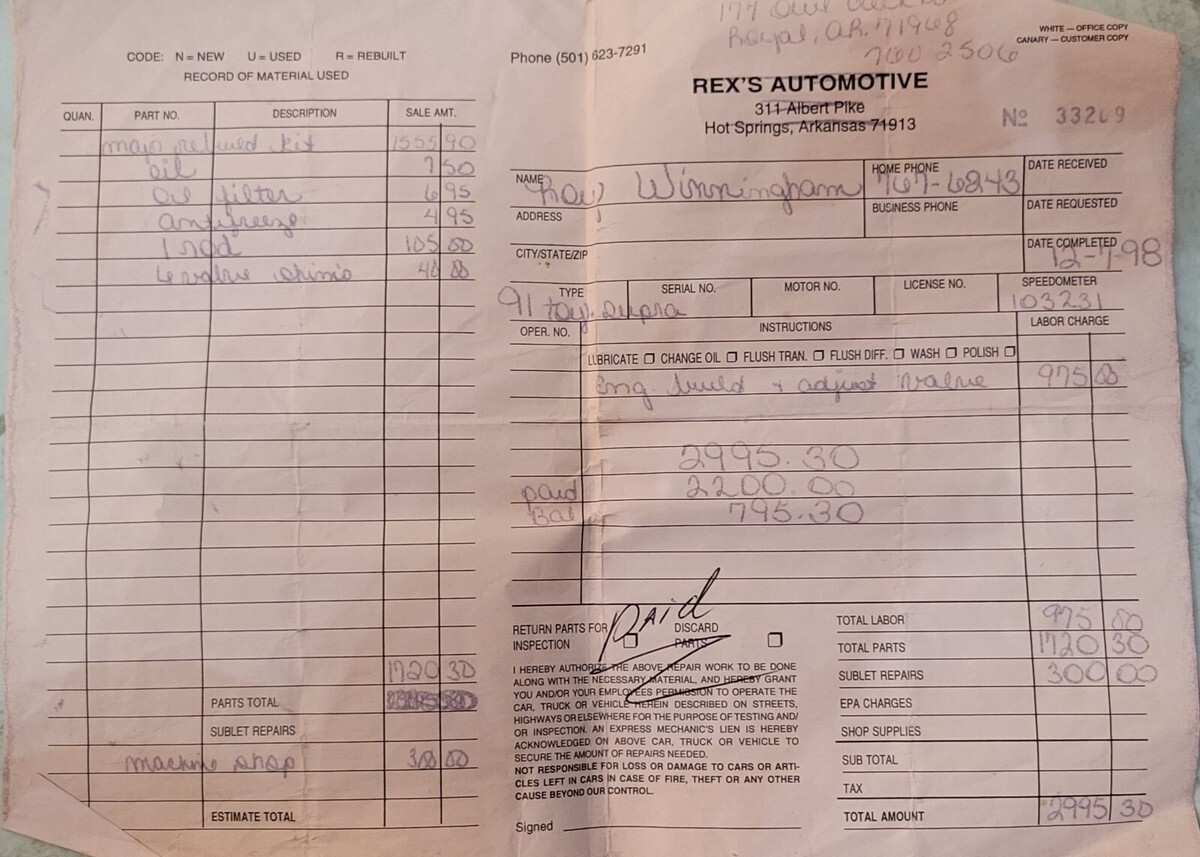 CODE: N = NEW U = USED R = REBUILT
RECORD OF MATERIAL USED
QUAN. PART NO. DESCRIPTION SALE AMT.
majo rebuild kit 1555 90
oil 7 50
oil filter 6 95
antifreeze 4 95
1 rod 105 00
valve shims 40 00
1720 30
PARTS TOTAL
SUBLET REPAIRS
machine shop 300 00
ESTIMATE TOTAL
177 Owl
Royal, AR. 71968
760 2506
WHITE — OFFICE COPY
CANARY — CUSTOMER COPY
Phone (501) 623-7291
REX'S AUTOMOTIVE
311 Albert Pike
Hot Springs, Arkansas 71913
No 33209
NAME Ray Winningham HOME PHONE 767-6243 DATE RECEIVED
ADDRESS BUSINESS PHONE DATE REQUESTED
CITY/STATE/ZIP DATE COMPLETED 12-7-98
TYPE SERIAL NO. MOTOR NO. LICENSE NO. SPEEDOMETER
91 Toy. Supra 103231
OPER. NO. INSTRUCTIONS LABOR CHARGE
LUBRICATE CHANGE OIL FLUSH TRAN. FLUSH DIFF. WASH POLISH
Eng. build + adjust valve 975 00
2995.30
paid 2200.00
Bal 795.30
Paid
RETURN PARTS FOR INSPECTION DISCARD PARTS
I HEREBY AUTHORIZE THE ABOVE REPAIR WORK TO BE DONE
ALONG WITH THE NECESSARY MATERIAL, AND HEREBY GRANT
YOU AND/OR YOUR EMPLOYEES PERMISSION TO OPERATE THE
CAR, TRUCK OR VEHICLE HEREIN DESCRIBED ON STREETS,
HIGHWAYS OR ELSEWHERE FOR THE PURPOSE OF TESTING AND/
OR INSPECTION. AN EXPRESS MECHANIC'S LIEN IS HEREBY
ACKNOWLEDGED ON ABOVE CAR, TRUCK OR VEHICLE TO
SECURE THE AMOUNT OF REPAIRS NEEDED.
NOT RESPONSIBLE FOR LOSS OR DAMAGE TO CARS OR ARTI-
CLES LEFT IN CARS IN CASE OF FIRE, THEFT OR ANY OTHER
CAUSE BEYOND OUR CONTROL.
Signed
TOTAL LABOR 975 00
TOTAL PARTS 1720 30
SUBLET REPAIRS 300 00
EPA CHARGES
SHOP SUPPLIES
SUB TOTAL
TAX
TOTAL AMOUNT 2995 30